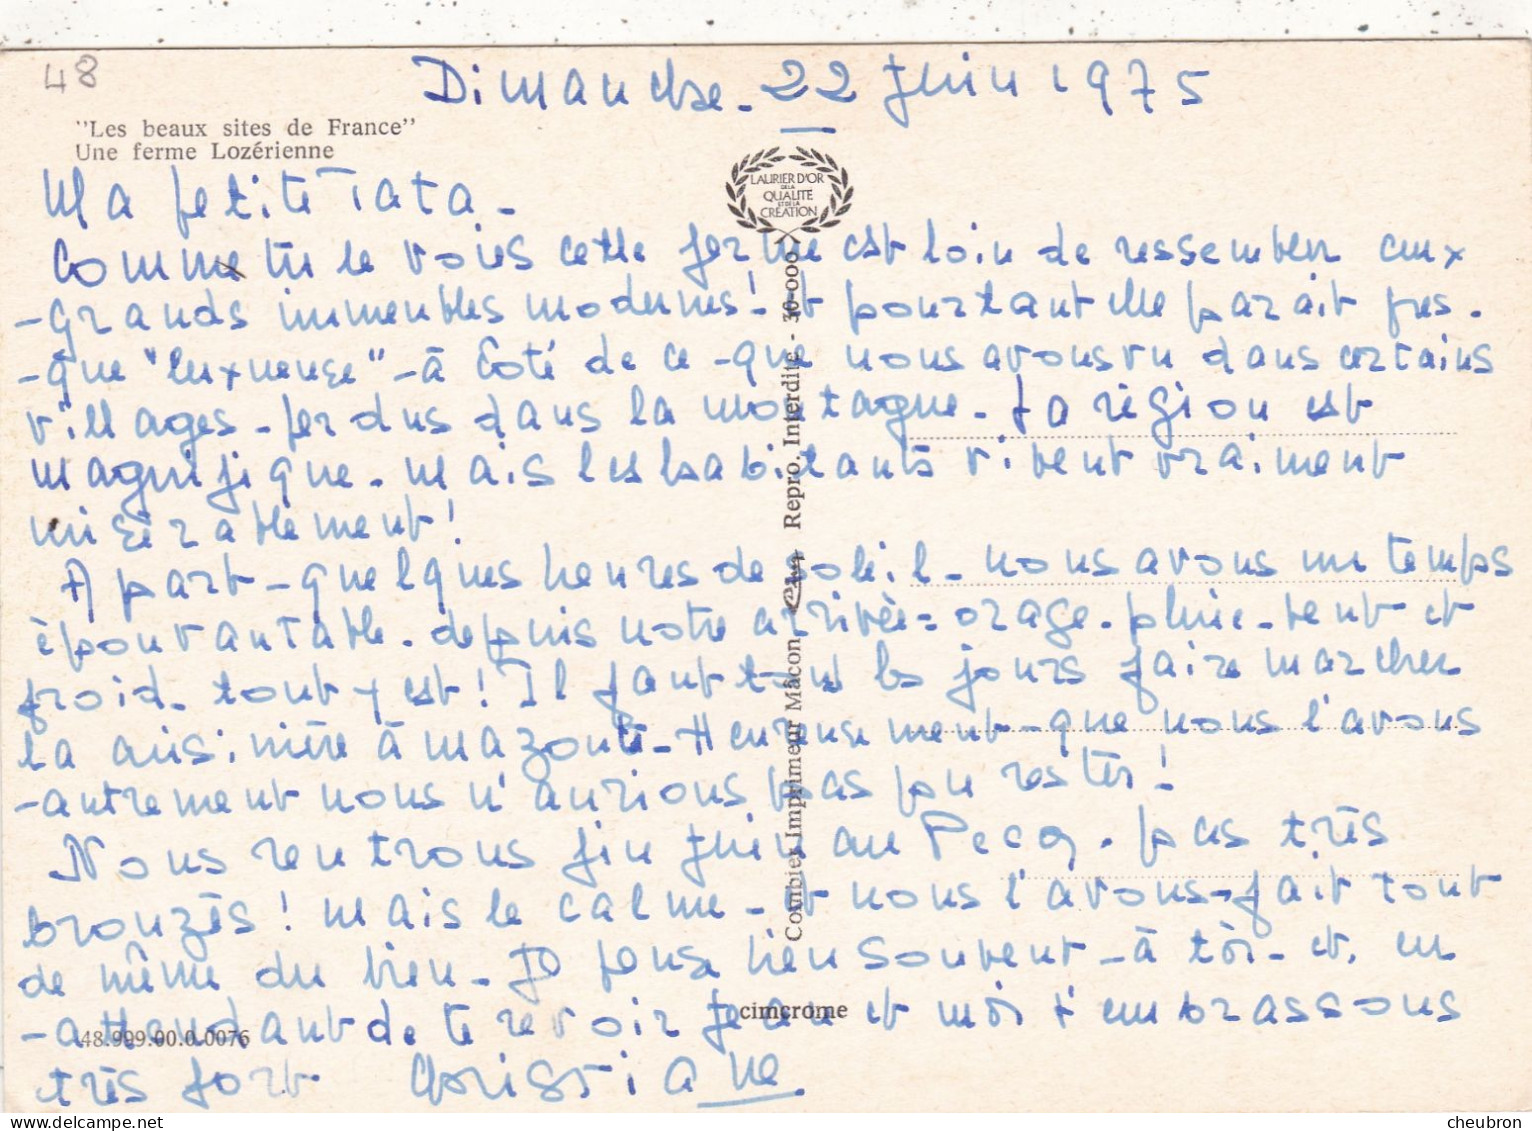 48
Dimanche - 22 Juin 1975
"Les beaux sites de France"
Une ferme Lozérienne
LAURIER D'OR
DE LA
QUALITE
ET DE LA
CREATION
Ma petite Tata -
Comme tu le vois cette ferme est loin de ressembler aux
- grands immeubles modernes ! et pourtant elle parait pres -
- que "luxueuse" - à côté de ce - que nous avons vu dans certains
villages - perdus dans la montagne - La région est
magnifique - mais les habitants vivent vraiment
misérablement !
A part - quelques heures de soleil - nous avons un temps
épouvantable - depuis notre arrivée = orage - pluie - vent et
froid - tout y est ! Il faut tous les jours faire marcher
la cuisinière à mazout - Heureusement - que nous l'avons
- autrement nous n'aurions pas pu rester !
Nous rentrons fin Juin au Pecq - pas très
bronzés ! mais le calme - et nous l'avons - fait tout
de même du bien - Je pense bien souvent - à toi - et, en
- attendant de te revoir et moi t'embrassons
très fort Christiane
Combier Imprimeur Mâcon Cim Repro. Interdite - 30-000
cimcrome
48.999.00.0.0076
cheubron